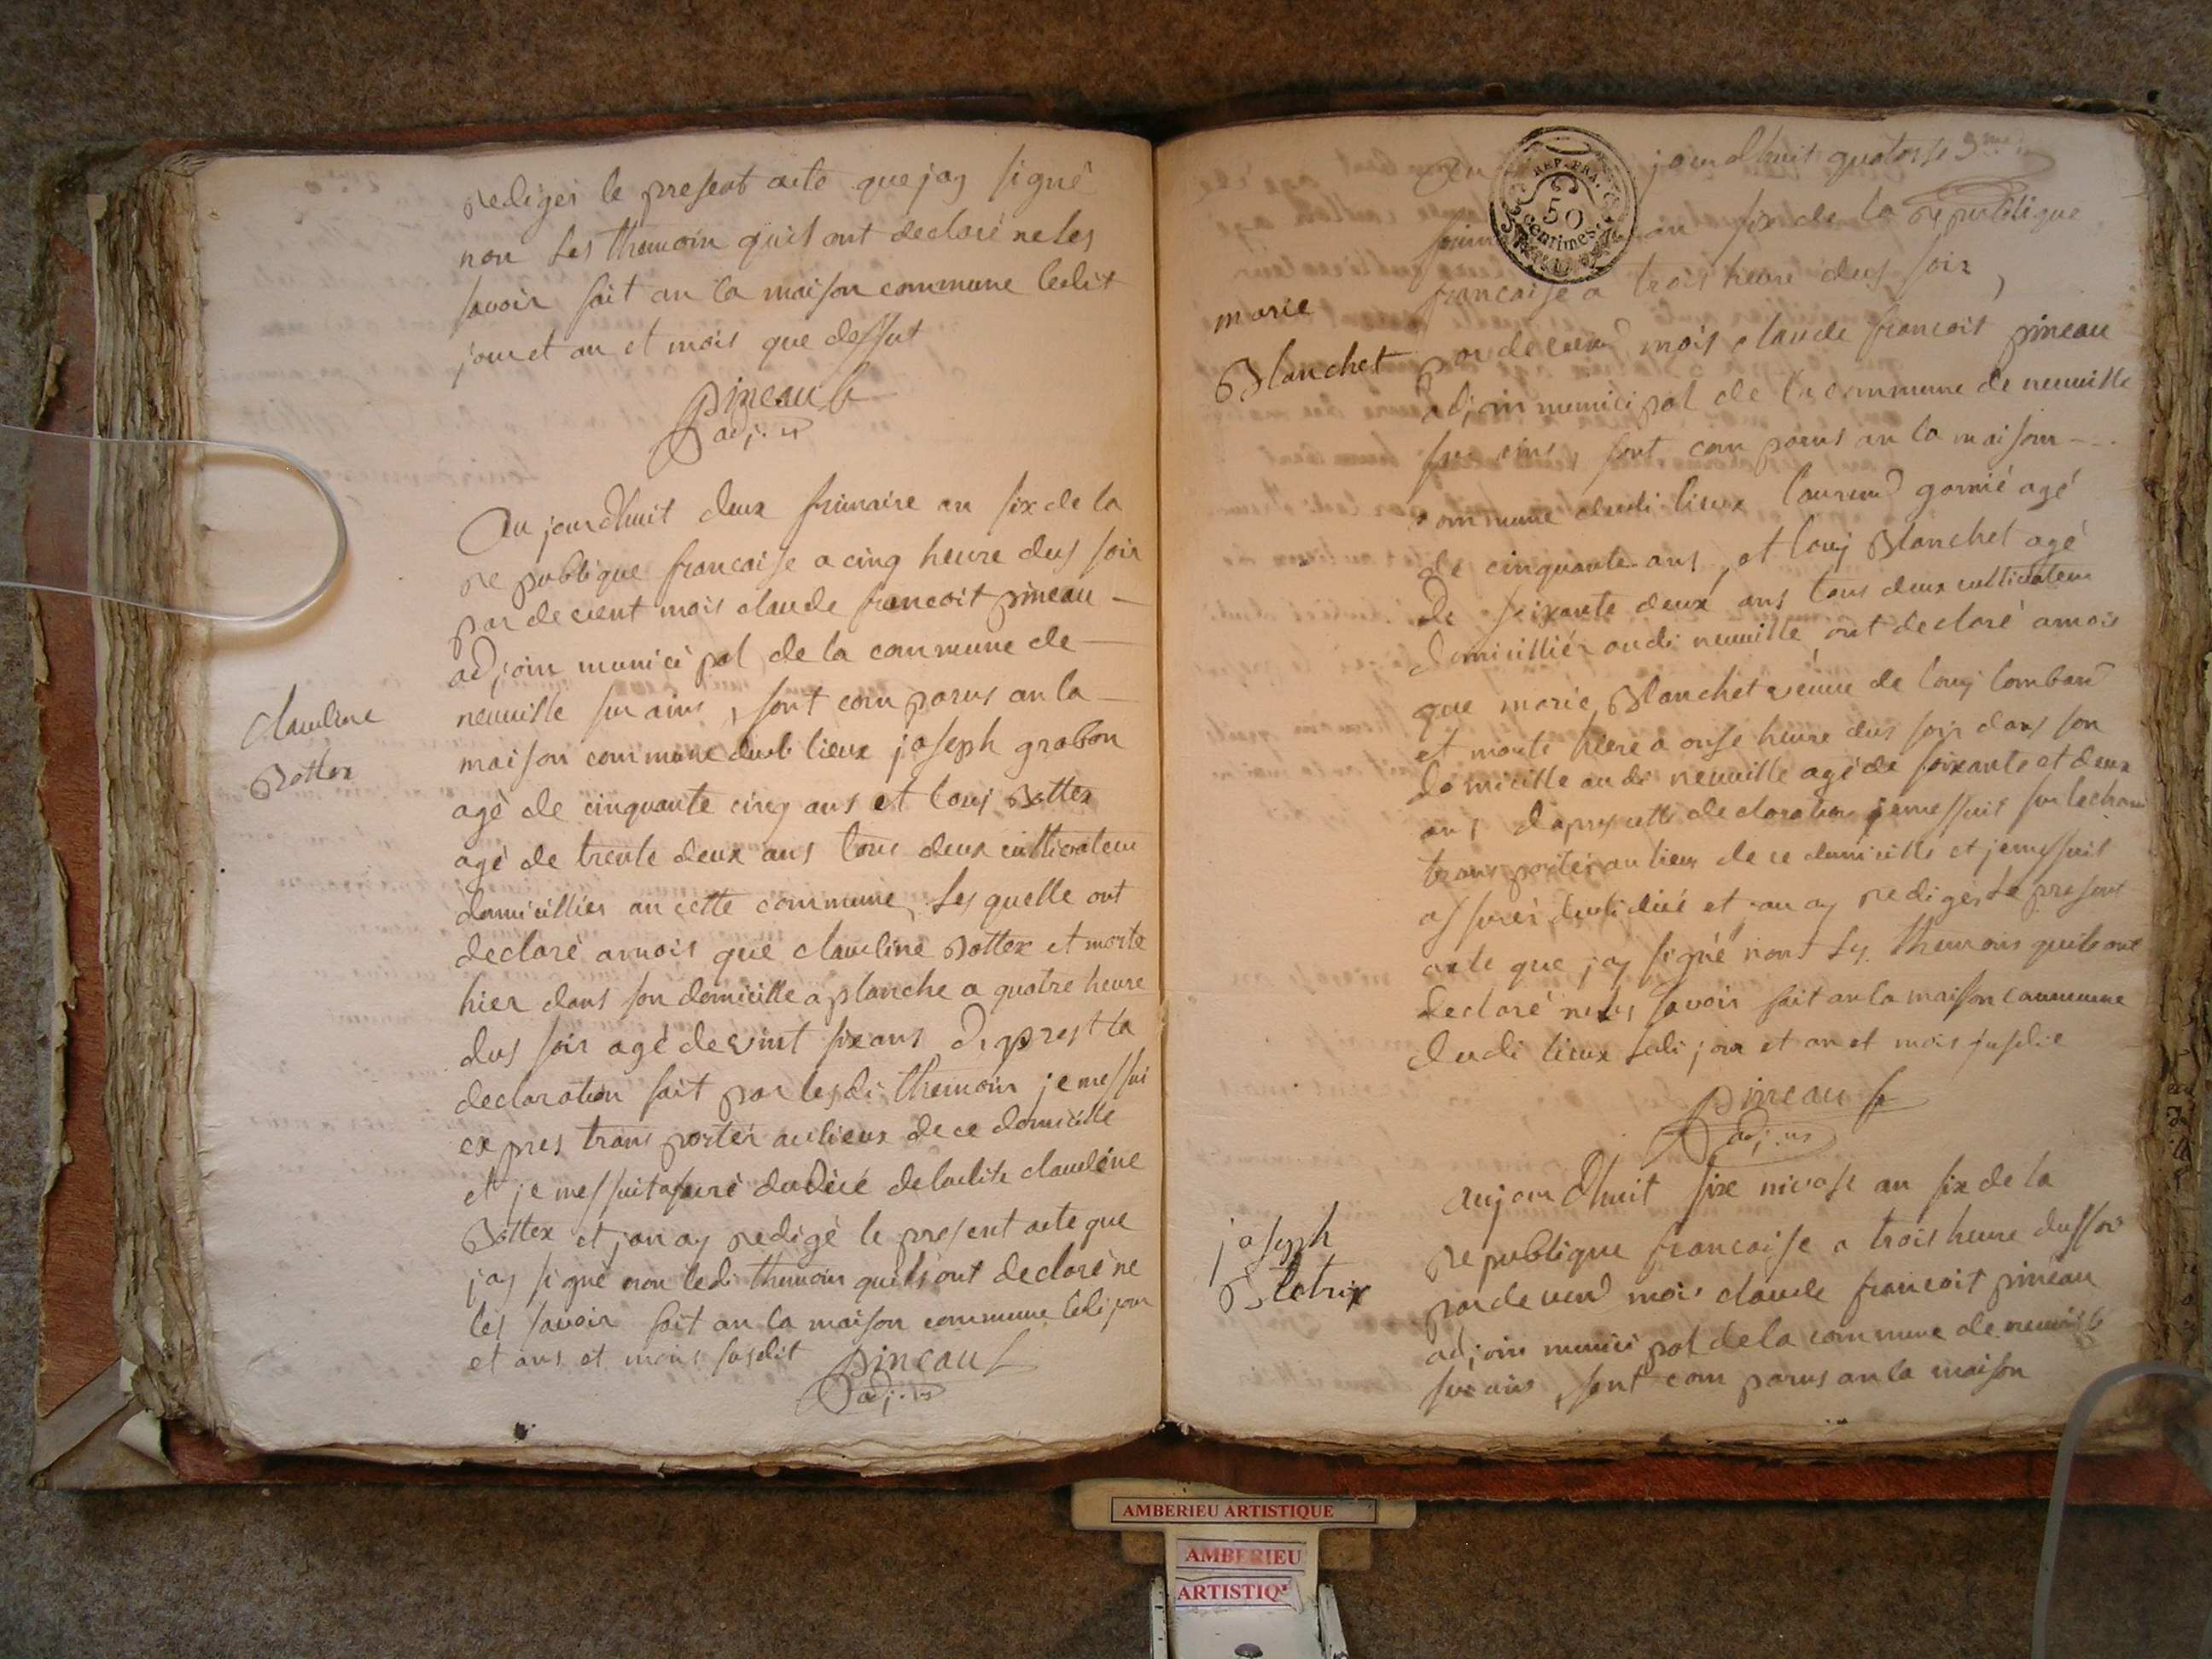 rediger le present acte que jay signé
non les themoin quis ont declaré ne les
savoir fait an la maison commune ledit
jour et an et mois que dessut
pineau
adj.
Au jourdhuit deux frimaire an six de la
republique francaise a cinq heure dus soir
par devent mois claude francoit pineau
adjoin municipal de la commune de
neuville sur ains, sont comparus an la
claudine
Bottex
maison commune dudi lieux joseph grabon
agé de cinquante cinq ans et louj Bottex
agé de trente deux ans tous deux cultivateur
domicilliés an cette commune, les quelle ont
declaré amois que claudine Bottex et morte
hier dans son domicille a planche a quatre heure
dus soir agé de vint six ans
declaration fait par lesdi themoin je messui
expres trans porter au lieux de ce domicille
et je messuit assuré dudicé de ladite claudine
Bottex et jan ay redigé le present acte que
jay signé non ledi themoin quils ont declaré ne
les savoir fait an la maison commune ledi jour
et ans et mois susdit
pineau
adj.
REP. FRA.
50
Centimes.
jourdhuit quatorse
an six de la republique
francaise a trois heure dus soir,
marie
Blanchet
par devend mois claude francoit pineau
adjoin municipal de la commune de neuville
sur ains, sont comparus an la maison
commune dudi lieux laurend garnié agé
de cinquante ans, et louj Blanchet agé
de soixante deux ans tous deux cultivateur
domicilliés audi neuville, ont declaré amois
que marie Blanchet veuve de louj lombard
et morte hiere a onse heure dus soir dans son
domicille audi neuville agé de soixante et deux
ans daprey cette declaration je messuis sur le cham
transporter au lieux de ce domicille et je messuit
assurér dudi dicé et jan ay rediger le present
acte que jay signé non ley themoins quils ont
declaré ne les savoir fait an la maison commune
dudi lieux ledi jour et an et mois susdie
pineau
adj.
aujourdhuit sixe nivose an six de la
joseph
Blatrix
republique francaise a trois heure dus soir
par devend mois claude francoit pineau
adjoin municipal de la commune de neuville
sur ains, sont comparus an la maison
AMBERIEU ARTISTIQUE
AMBERIEU
ARTISTIQ